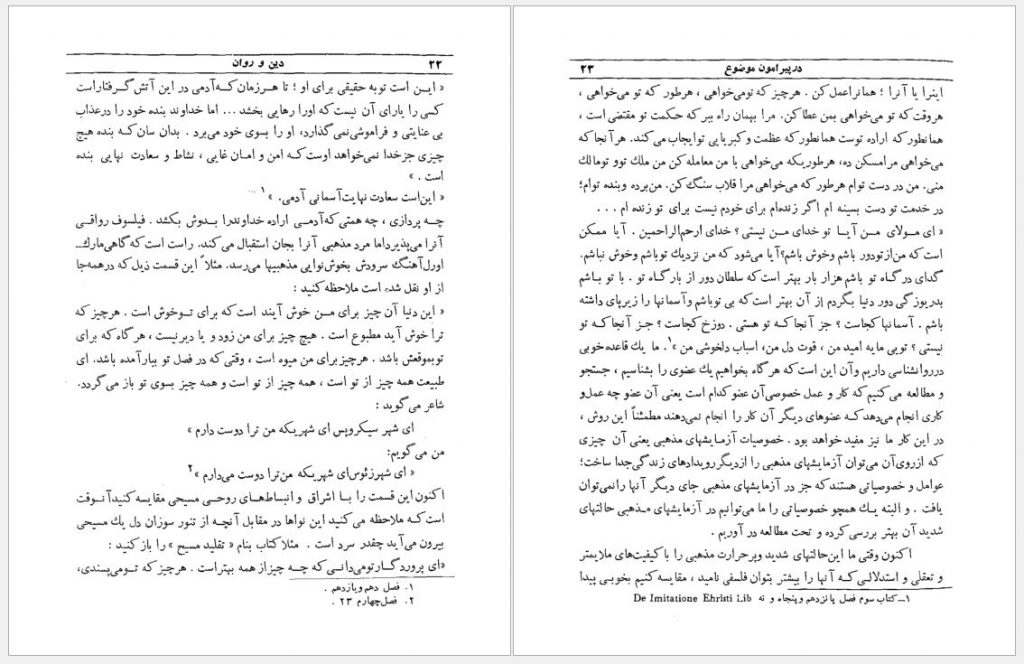 ۲۲ دین و روان
« این است توبه حقیقی برای او ؛ تا هرزمان که آدمی در این آتش گرفتاراست
کسی را یارای آن نیست که اورا رهایی بخشد ... اما خداوند بنده خود را درعذاب
بی عنایتی و فراموشی نمی گذارد، او را بسوی خود می برد . بدان سان که بنده هیچ
چیزی جز خدا نمی خواهد اوست که امن و امان غایی ، نشاط و سعادت نهایی بنده
است . »
« این است سعادت نهایت آسمانی آدمی. »۱ ...
چه پردازی ، چه همتی که آدمی اراده خداوندرا بدوش بکشد . فیلسوف رواقی
آنرا می پذیرد اما مرد مذهبی آنرا بجان استقبال می کند. راست است که گاهی مارك
اورل آهنگ سرودش بخوش نوایی مذهبیها می رسد. مثلاً این قسمت ذیل که در همه جا
از او نقل شده است ملاحظه کنید :
« این دنیا آن چیز برای من خوش آیند است که برای تو خوش است . هرچیز که
ترا خوش آید مطبوع است . هیچ چیز برای من زود و یا دیر نیست ، هرگاه که برای
تو بموقعش باشد . هرچیز برای من میوه است ، وقتی که در فصل تو ببار آمده باشد. ای
طبیعت همه چیز از تو است ، همه چیز از تو است و همه چیز بسوی تو باز می گردد.
شاعر می گوید :
ای شهر سیکروپس ای شهریکه من ترا دوست دارم »
من می گویم:
« ای شهر زئوس ای شهریکه من ترا دوست می دارم »۲
اکنون این قسمت را با اشراق و انبساطهای روحی مسیحی مقایسه کنید آنوقت
است که ملاحظه می کنید این نواها در مقابل آنچه از تنور سوزان دل یك مسیحی
بیرون می آید چقدر سرد است . مثلا کتاب بنام « تقلید مسیح » را باز کنید :
«ای پروردگار تو می دانی که چه چیز از همه بهتر است . هرچیز که تو می پسندی،
۱. فصل دهم و یازدهم .
۲. فصل چهارم ۲۳ .
در پیرامون موضوع ۲۳
اینرا یا آنرا ؛ همانرا عمل کن . هرچیز که تو می خواهی ، هرطور که تو می خواهی ،
هروقت که تو می خواهی بمن عطا کن. مرا بهمان راه ببر که حکمت تو مقتضی است ،
همانطور که اراده توست همانطور که عظمت و کبریایی تو ایجاب می کند. هر آنجا که
می خواهی مرا مسکن ده، هرطوریکه می خواهی با من معامله کن من ملك تو و تو مالك
منی. من در دست توام هرطور که می خواهی مرا قلاب سنگ کن. من برده و بنده توام؛
در خدمت تو دست بسینه ام اگر زنده ام برای خودم نیست برای تو زنده ام ....
« ای مولای من آیا تو خدای من نیستی ؟ خدای ارحم الراحمین . آیا ممکن
است که من از تو دور باشم وخوش باشم؟ آیا می شود که من نزدیك تو باشم وخوش نباشم.
گدای درگاه تو باشم هزار بار بهتر است که سلطان دور از بارگاه تو . با تو باشم
بدریوزگی دور دنیا بگردم از آن بهتر است که بی تو باشم وآسمانها را زیر پای داشته
باشم . آسمانها کجاست ؟ جز آنجا که تو هستی . دوزخ کجاست ؟ جز آنجا که تو
نیستی ؟ تویی مایه امید من ، قوت دل من، اسباب دلخوشی من »۱. ما یك قاعده خوبی
در روانشناسی داریم وآن این است که هرگاه بخواهیم یك عضوی را بشناسیم ، جستجو
و مطالعه می کنیم که کار و عمل خصوصی آن عضو کدام است یعنی آن عضو چه عمل و
کاری انجام می دهد که عضوهای دیگر آن کار را انجام نمی دهند مطمئناً این روش ،
در این کار ما نیز مفید خواهد بود . خصوصیات آزمایشهای مذهبی یعنی آن چیزی
که از روی آن می توان آزمایشهای مذهبی را از دیگر رویدادهای زندگی جدا ساخت؛
عوامل و خصوصیاتی هستند که جز در آزمایشهای مذهبی جای دیگر آنها را نمی توان
یافت . و البته یك همچو خصوصیاتی را ما می توانیم در آزمایشهای مذهبی حالتهای
شدید آن بهتر بررسی کرده و تحت مطالعه در آوریم .
اکنون وقتی ما این حالتهای شدید وپرحرارت مذهبی را با کیفیت های ملایمتر
و تعقلی و استدلالی که آنها را بیشتر بتوان فلسفی نامید ، مقایسه کنیم بخوبی پیدا
۱ــ کتاب سوم فصل پانزدهم و پنجاه و نه De Imitatione Ehristi Lib